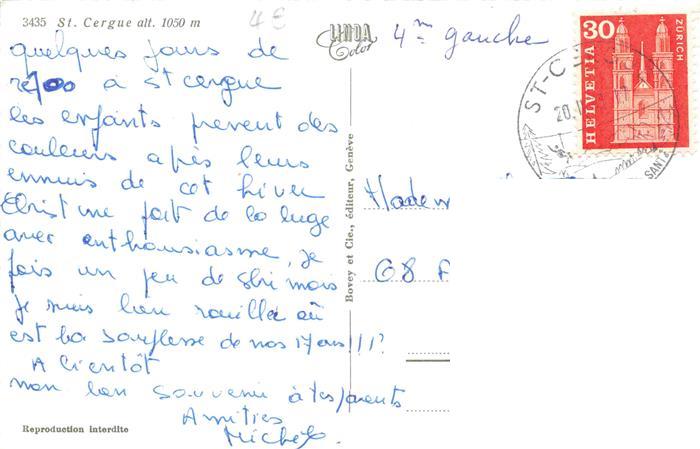 3435 St. Cergue alt. 1050 m
4 €
LINDA
Color
4me gauche
30
HELVETIA
ZÜRICH
ST-CE
20.
SANTÉ
quelques jours de
repos à st cergue
les enfants prenent des
couleurs après leurs
ennuis de cet hiver
Christine fait de la luge
avec enthousiasme, je
fais un peu de ski mais
je suis bien rouillée où
est la souplesse de nos 17 ans!!!?
A bientôt
mon bon souvenir à tes parents
Amitiés
Michèle.
Madem
68
Bovey et Cie., éditeur, Genève
Reproduction interdite